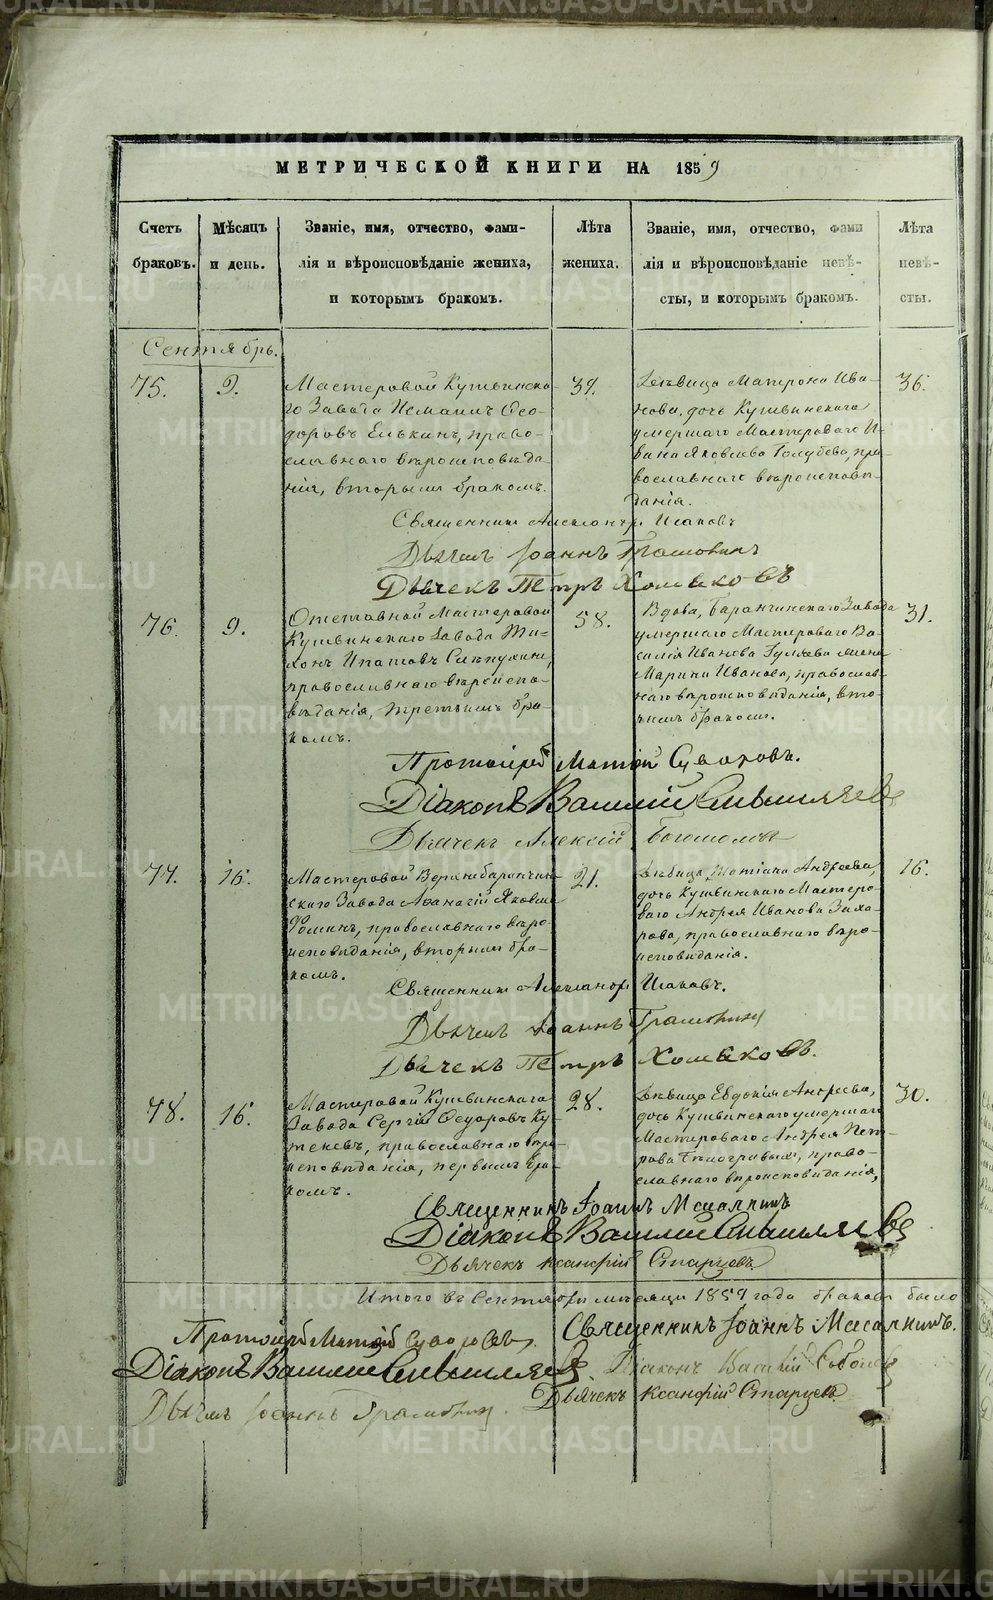 МЕТРИЧЕСКОЙ КНИГИ НА 1859
Счетъ браковъ.
Мѣсяцъ и день.
Званіе, имя, отчество, фами-
лія и вѣроисповѣданіе жениха,
и которымъ бракомъ.
Лѣта жениха.
Званіе, имя, отчество, фами
лія и вѣроисповѣданіе невѣ-
сты, и которымъ бракомъ.
Лѣта невѣ-
сты.
Сентябрь.
75.
9.
Мастеровой Кушвинска-
го Завода Ѳео-
доровъ Елькинъ, право-
славнаго вѣроисповѣда-
нія, вторымъ бракомъ.
39.
Дѣвица Матрона Ива-
нова, дочь Кушвинскаго
умершаго Мастероваго И-
вана Яковлева Голубева, пра-
вославнаго вѣроисповѣ-
данія.
36.
Священникъ Александръ
Дьячекъ Іоаннъ
Дьячекъ Петръ Хомяковъ
76.
9.
Отставной Мастеровой
Кушвинскаго Завода Ти-
хонъ Ипатовъ
православнаго вѣроиспо-
вѣданія, третьимъ бра-
комъ.
58.
Вдова, Баранчинскаго Завода
умершаго Мастероваго Ва-
силія Иванова Гуляева жена
Марина Иванова, православ-
наго вѣроисповѣданія, вто-
рымъ бракомъ.
31.
Протоіерей Матѳій Суворовъ.
Діаконъ Василій
Дьячекъ Алексій
77.
16.
Мастеровой Верхнебаранчин-
скаго Завода Аѳанасій Яковлевъ
Ѳоминъ, православнаго вѣро-
исповѣданія, вторымъ бра-
комъ.
21.
Дѣвица Татіана Андреева,
дочь Кушвинскаго Мастеро-
ваго Андрея Иванова Заха-
рова, православнаго вѣро-
исповѣданія.
16.
Священникъ Александръ
Дьячекъ Іоаннъ
Дьячекъ Петръ Хомяковъ.
78.
16.
Мастеровой Кушвинскаго
Завода Сергій Ѳедоровъ Ку-
теневъ, православнаго вѣро-
исповѣданія, первымъ бра-
комъ.
28.
Дѣвица Евдокія Андреева,
дочь Кушвинскаго умершаго
Мастероваго Андрея Пет-
рова Бѣлогривыхъ, право-
славнаго вѣроисповѣданія,
30.
Священникъ Іоаннъ
Діаконъ Василій
Дьячекъ Ксанфій Старцевъ
Итого въ Сентябрѣ мѣсяцѣ 1859 года браковъ было
Протоіерей Матѳій Суворовъ.
Священникъ Іоаннъ
Діаконъ Василій
Діаконъ Василій Соболевъ
Дьячекъ Ксанфій Старцевъ
Дьячекъ Іоаннъ
METRIKI.GASO-URAL.RU